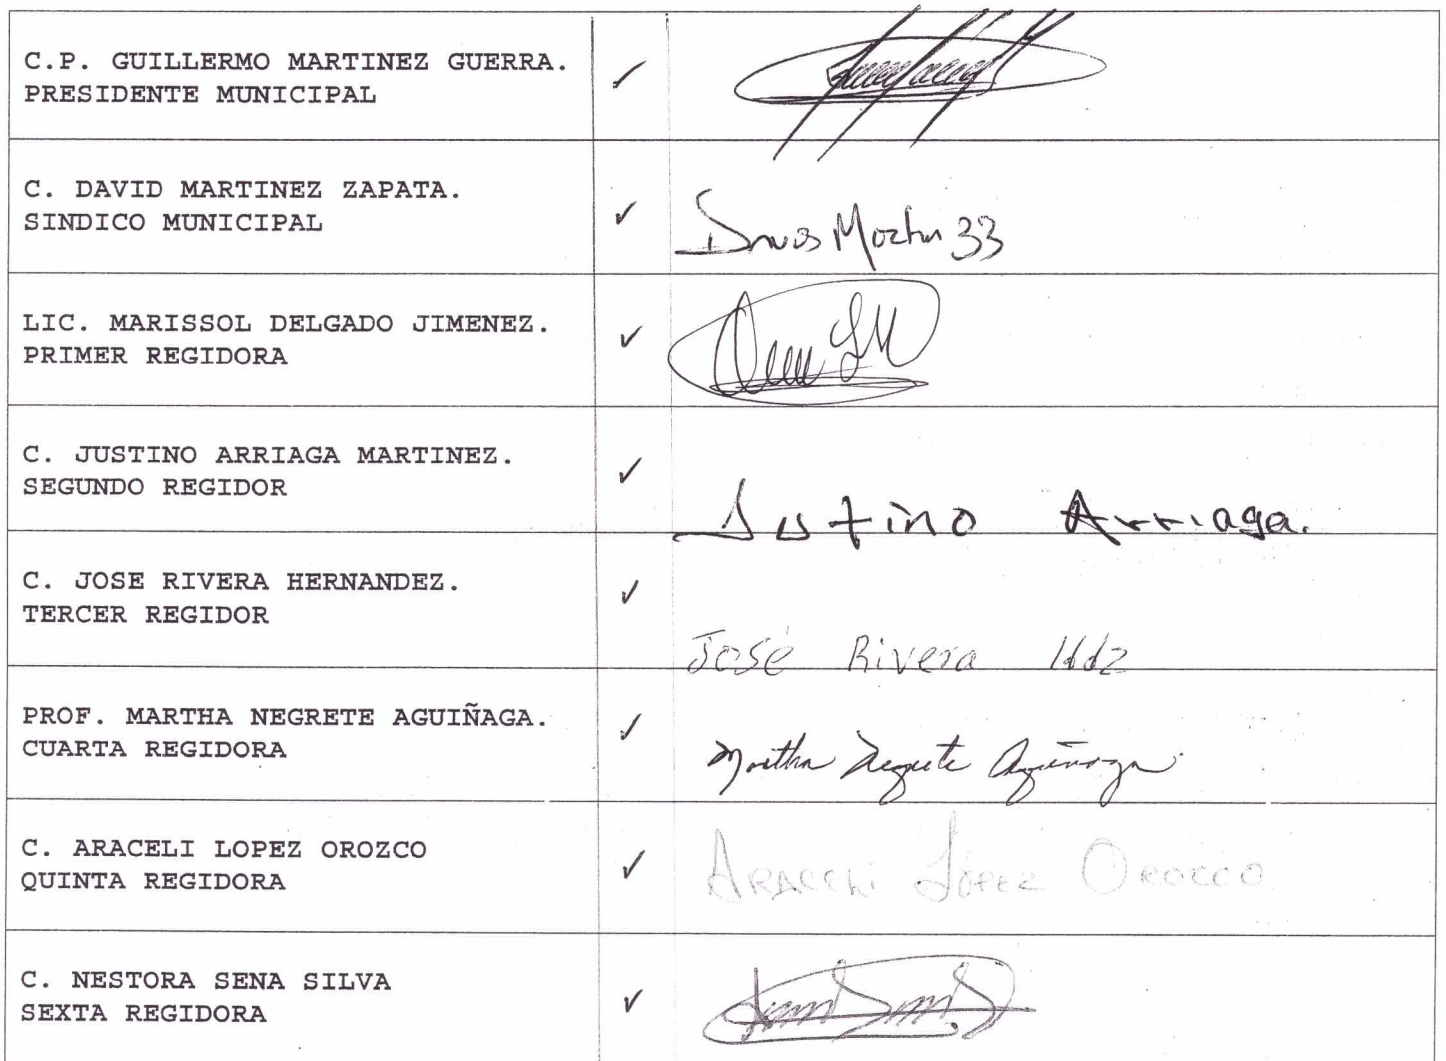 C.P. GUILLERMO MARTINEZ GUERRA.
PRESIDENTE MUNICIPAL
C. DAVID MARTINEZ ZAPATA.
SINDICO MUNICIPAL
LIC. MARISSOL DELGADO JIMENEZ.
PRIMER REGIDORA
C. JUSTINO ARRIAGA MARTINEZ.
SEGUNDO REGIDOR
Justino Arriaga.
C. JOSE RIVERA HERNANDEZ.
TERCER REGIDOR
José Rivera Hdz
PROF. MARTHA NEGRETE AGUIÑAGA.
CUARTA REGIDORA
Martha Negrete Aguiñaga
C. ARACELI LOPEZ OROZCO
QUINTA REGIDORA
ARACELi LÓPEZ OROZCO
C. NESTORA SENA SILVA
SEXTA REGIDORA